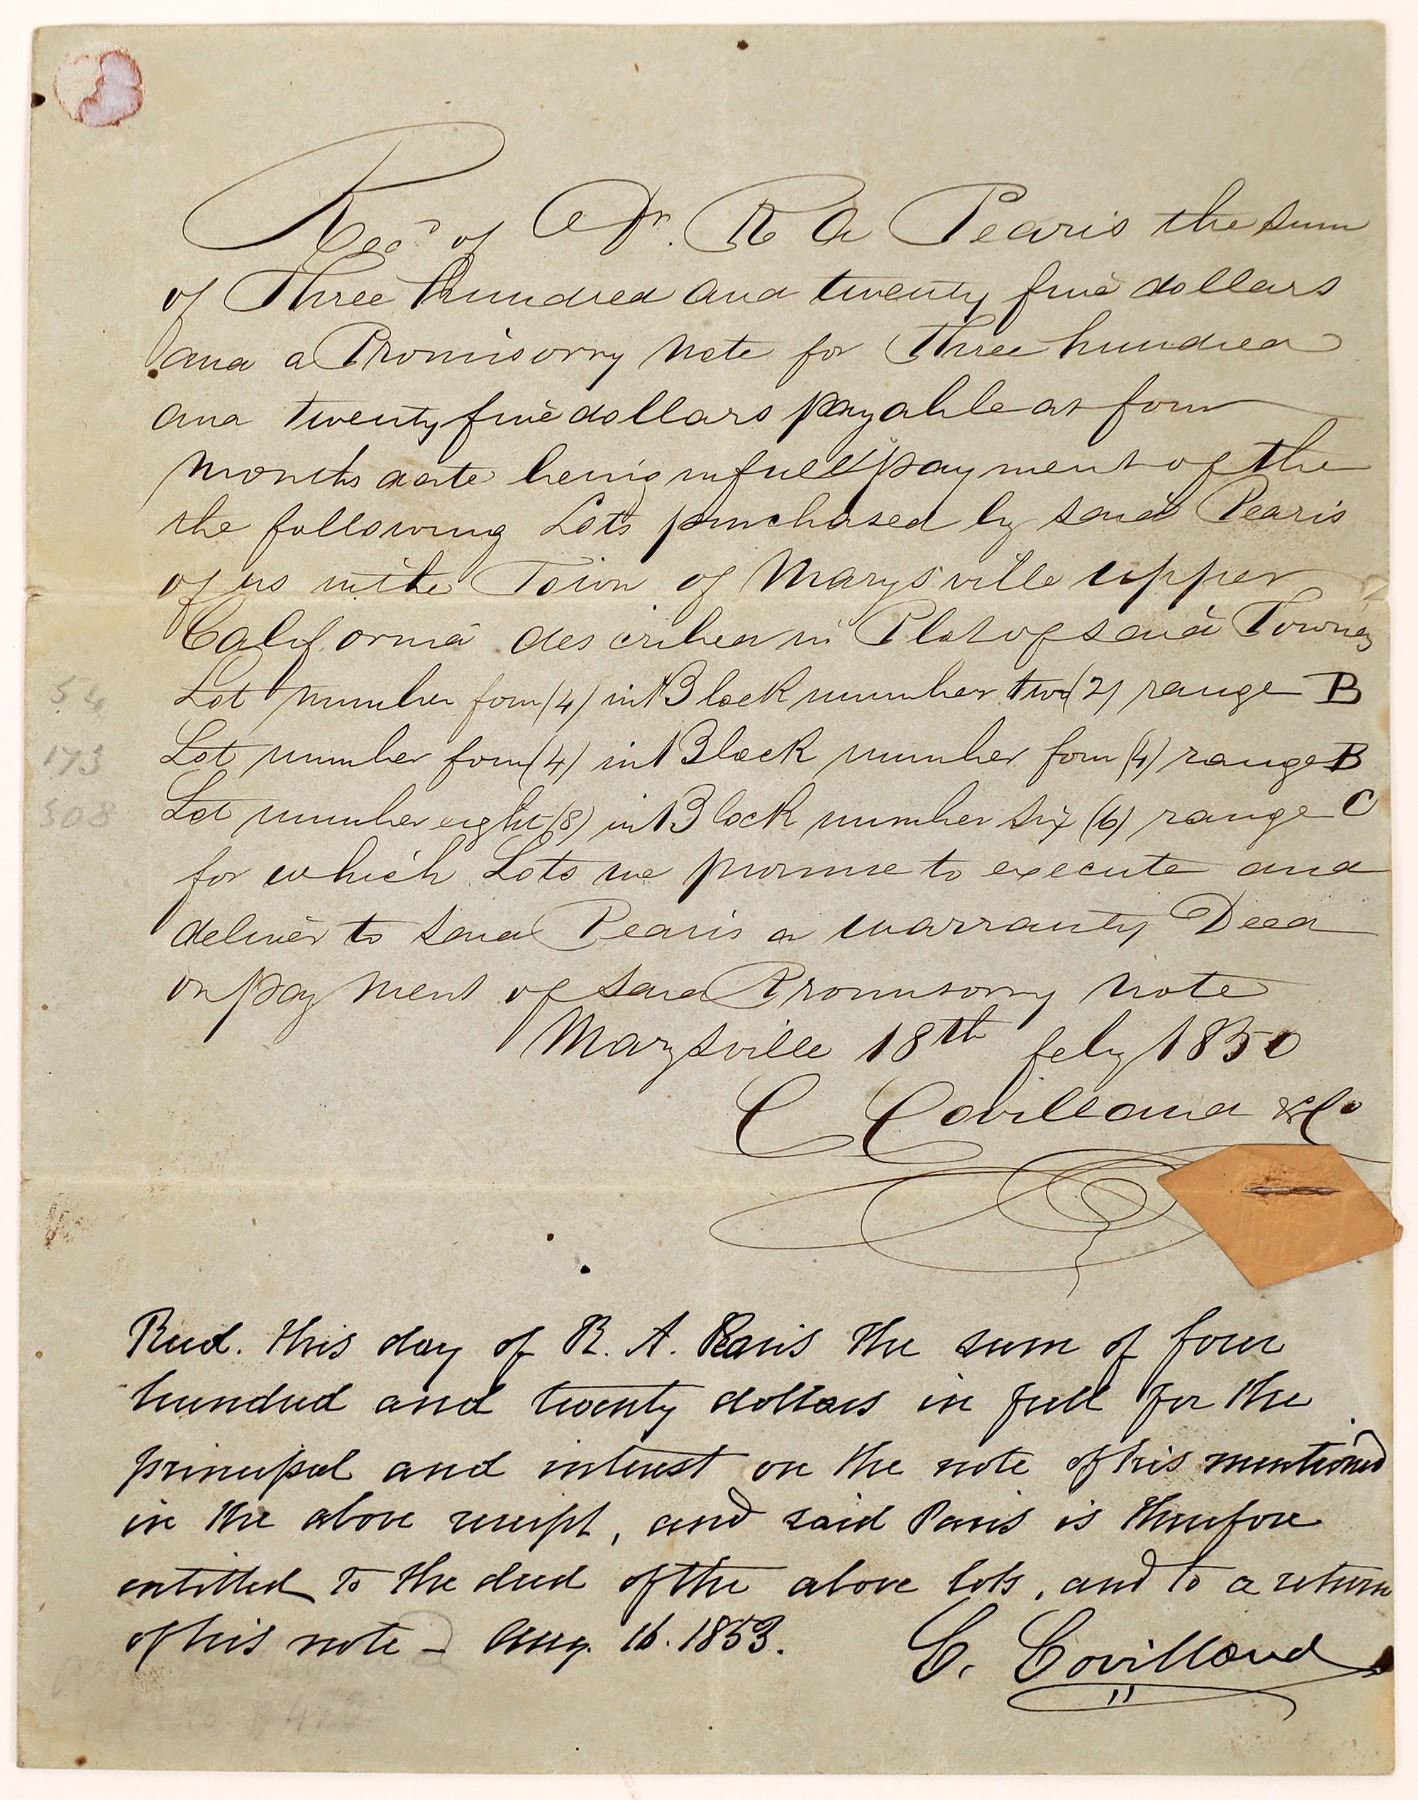 Recd of Dr. R A Pearis the sum
of Three hundred and twenty five dollars
and a Promisorry note for Three hundred
and twenty five dollars payable at four
months date being in full payment of the
the following Lots purchased by said Pearis
of us in the Town of Marysville upper
California described in Plat of said Town
Lot number four (4) in Block number two (2) range B
54
Lot number four (4) in Block number four (4) range B
173
Lot number eight (8) in Block number six (6) range C
508
for which Lots we promise to execute and
deliver to said Pearis a warranty Deed
on payment of said Promisorry note
Marysville 18th feby 1850
C Covillaud & Co
Recd. this day of R. A. Pearis the sum of four
hundred and twenty dollars in full for the
principal and interest on the note of his mentioned
in the above receipt, and said Paris is therefore
entitled to the deed of the above lots, and to a return
of his note - Aug. 16. 1853.
C. Covillaud